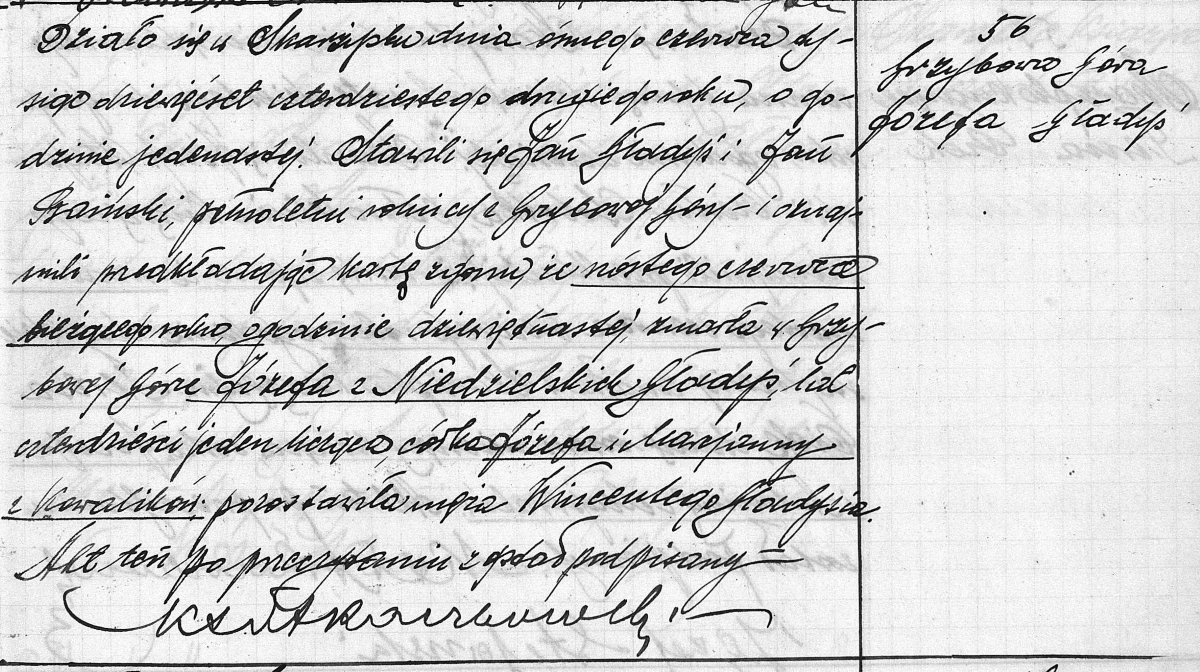 56
Grzybowa Góra
Józefa Gładyś
Działo się w Skarżysku dnia ósmego czerwca ty-
siąc dziewięćset czterdziestego drugiego roku, o go-
dzinie jedenastej. Stawili się Jan Gładyś i Jan
pełnoletni rolnicy z Grzybowej Góry – i oznaj-
mili przedkładając kartę zgonu, że szóstego czerwca
bieżącego roku, o godzinie dziewiętnastej, zmarła w Grzy-
bowej Górze Józefa z Niedzielskich Gładyś, lat
czterdzieści jeden licząca, córka Józefa i Marjanny
z Kowalików. pozostawiła męża Wincentego Gładysia.
Akt ten po przeczytaniu został podpisany –